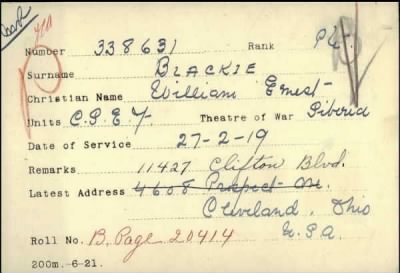 Number 338631 Rank Pte.
Surname BLACKIE
Christian Name William Ernest
Units C.S.E.F. Theatre of War Siberia
Date of Service 27-2-19
Remarks 11427 Clifton Blvd.
Latest Address 4608 Prospect Ave.
Cleveland, Ohio
Roll No. B. Page 20414 U.S.A.
200m.-6-21.